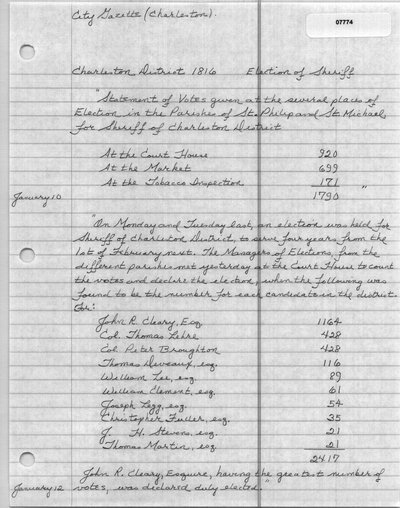 City Gazette (Charleston).
07774
Charleston District 1816 Election of Sheriff
"Statement of Votes given at the several places of
Election in the Parishes of St. Philip and St. Michael,
for Sheriff of Charleston District
At the Court House 920
At the Market 699
At the Tobacco Inspection 171
January 10 1790 "
"On Monday and Tuesday last, an election was held for
Sheriff of Charleston District, to serve four years from the
1st of February next. The Managers of Elections, from the
different parishes met yesterday at the Court House to count
the votes and declare the election, when the following was
found to be the number for each candidate in the district.
For:
John R. Cleary, Esq. 1164
Col. Thomas Lehre 428
Col. Peter Broughton 428
Thomas Deveaux, esq. 116
William Lee, esq. 89
William Clement, esq. 61
Joseph Legg, esq. 54
Christopher Fuller, esq. 35
J. H. Stevens, esq. 21
Thomas Martin, esq. 21
2417
John R. Cleary, Esquire, having the greatest number of
January 12 votes, was declared duly elected."